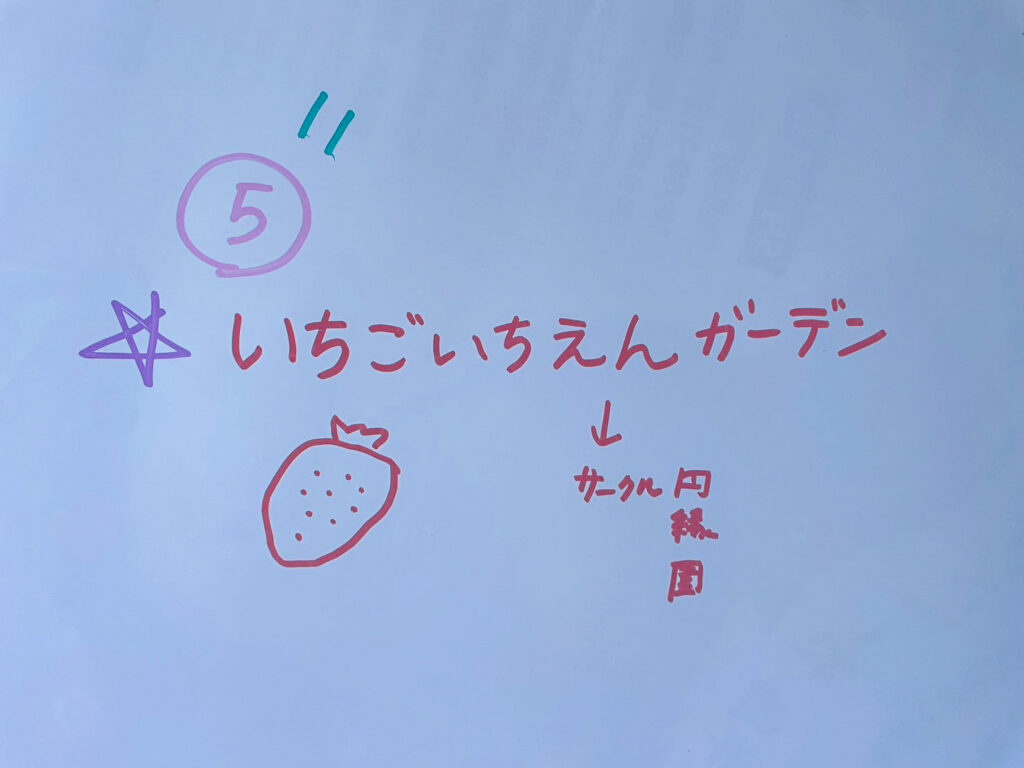 ⑤
☆ いちごいちえんガーデン
↓
サークル 円
縁
園